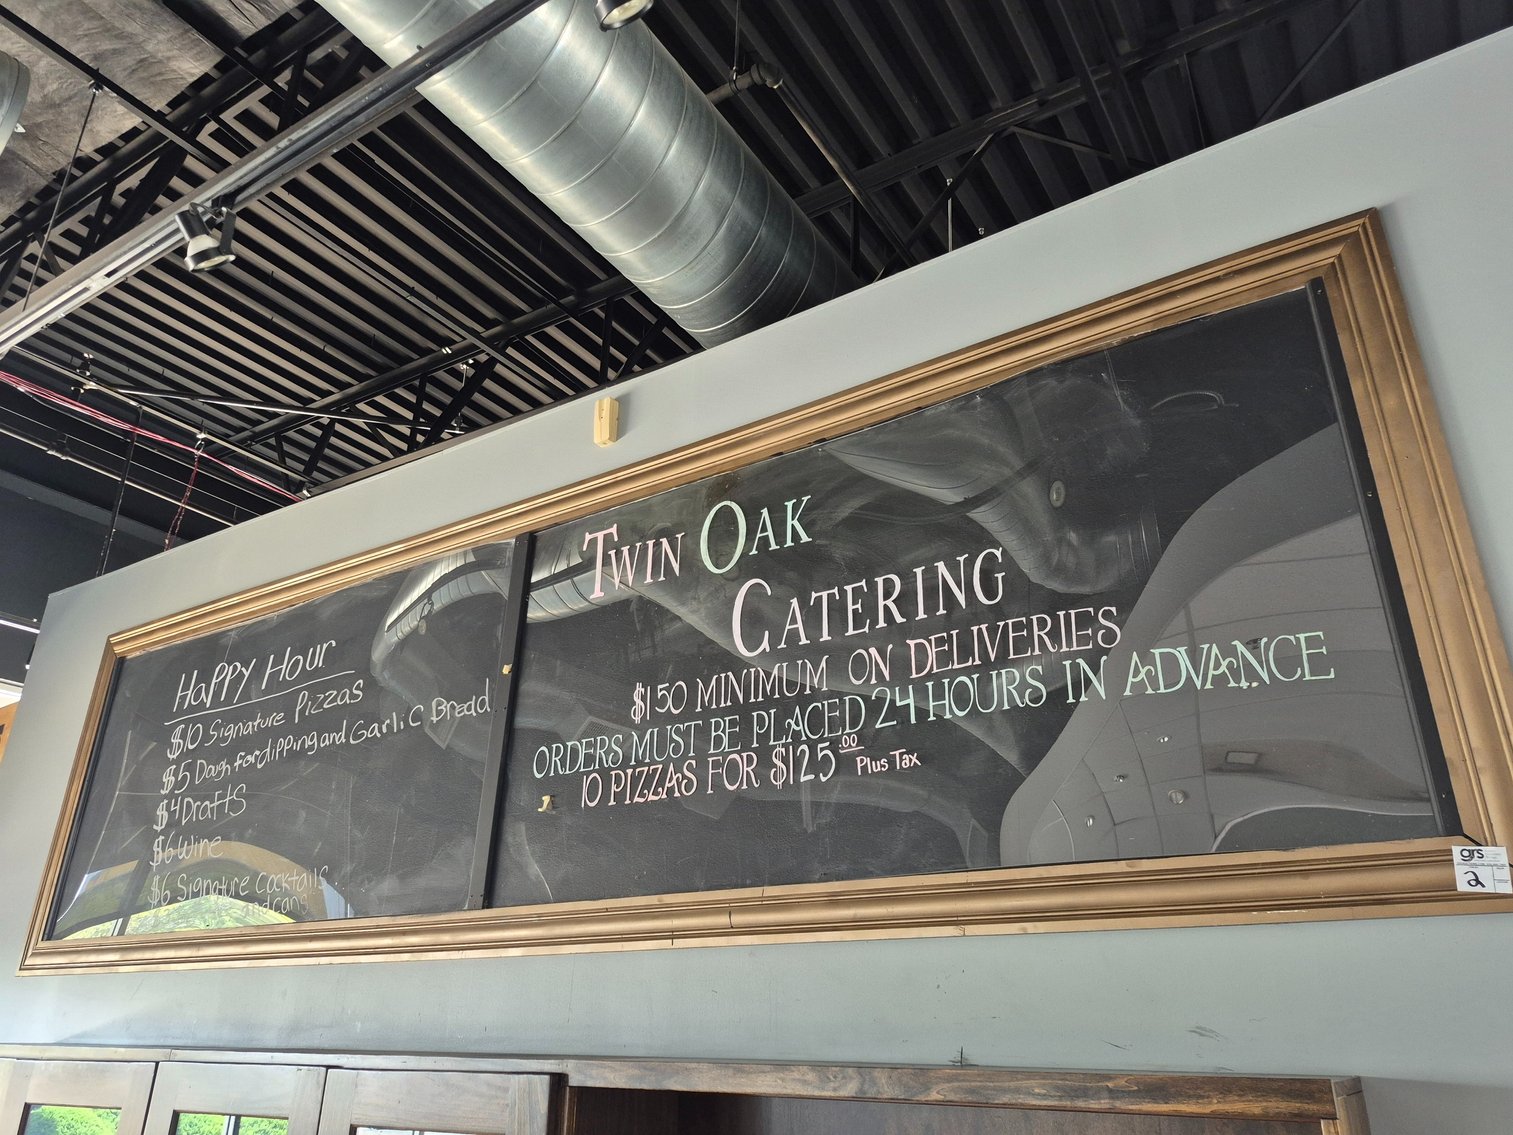 Happy Hour
$10 Signature Pizzas
$5 Dough for dipping and Garlic Bread
$4 Drafts
$6 Wine
$6 Signature Cocktails
and cans
Twin Oak
Catering
$150 MINIMUM ON DELIVERIES
ORDERS MUST BE PLACED 24 HOURS IN ADVANCE
10 PIZZAS FOR $125.00 Plus Tax
grs
2